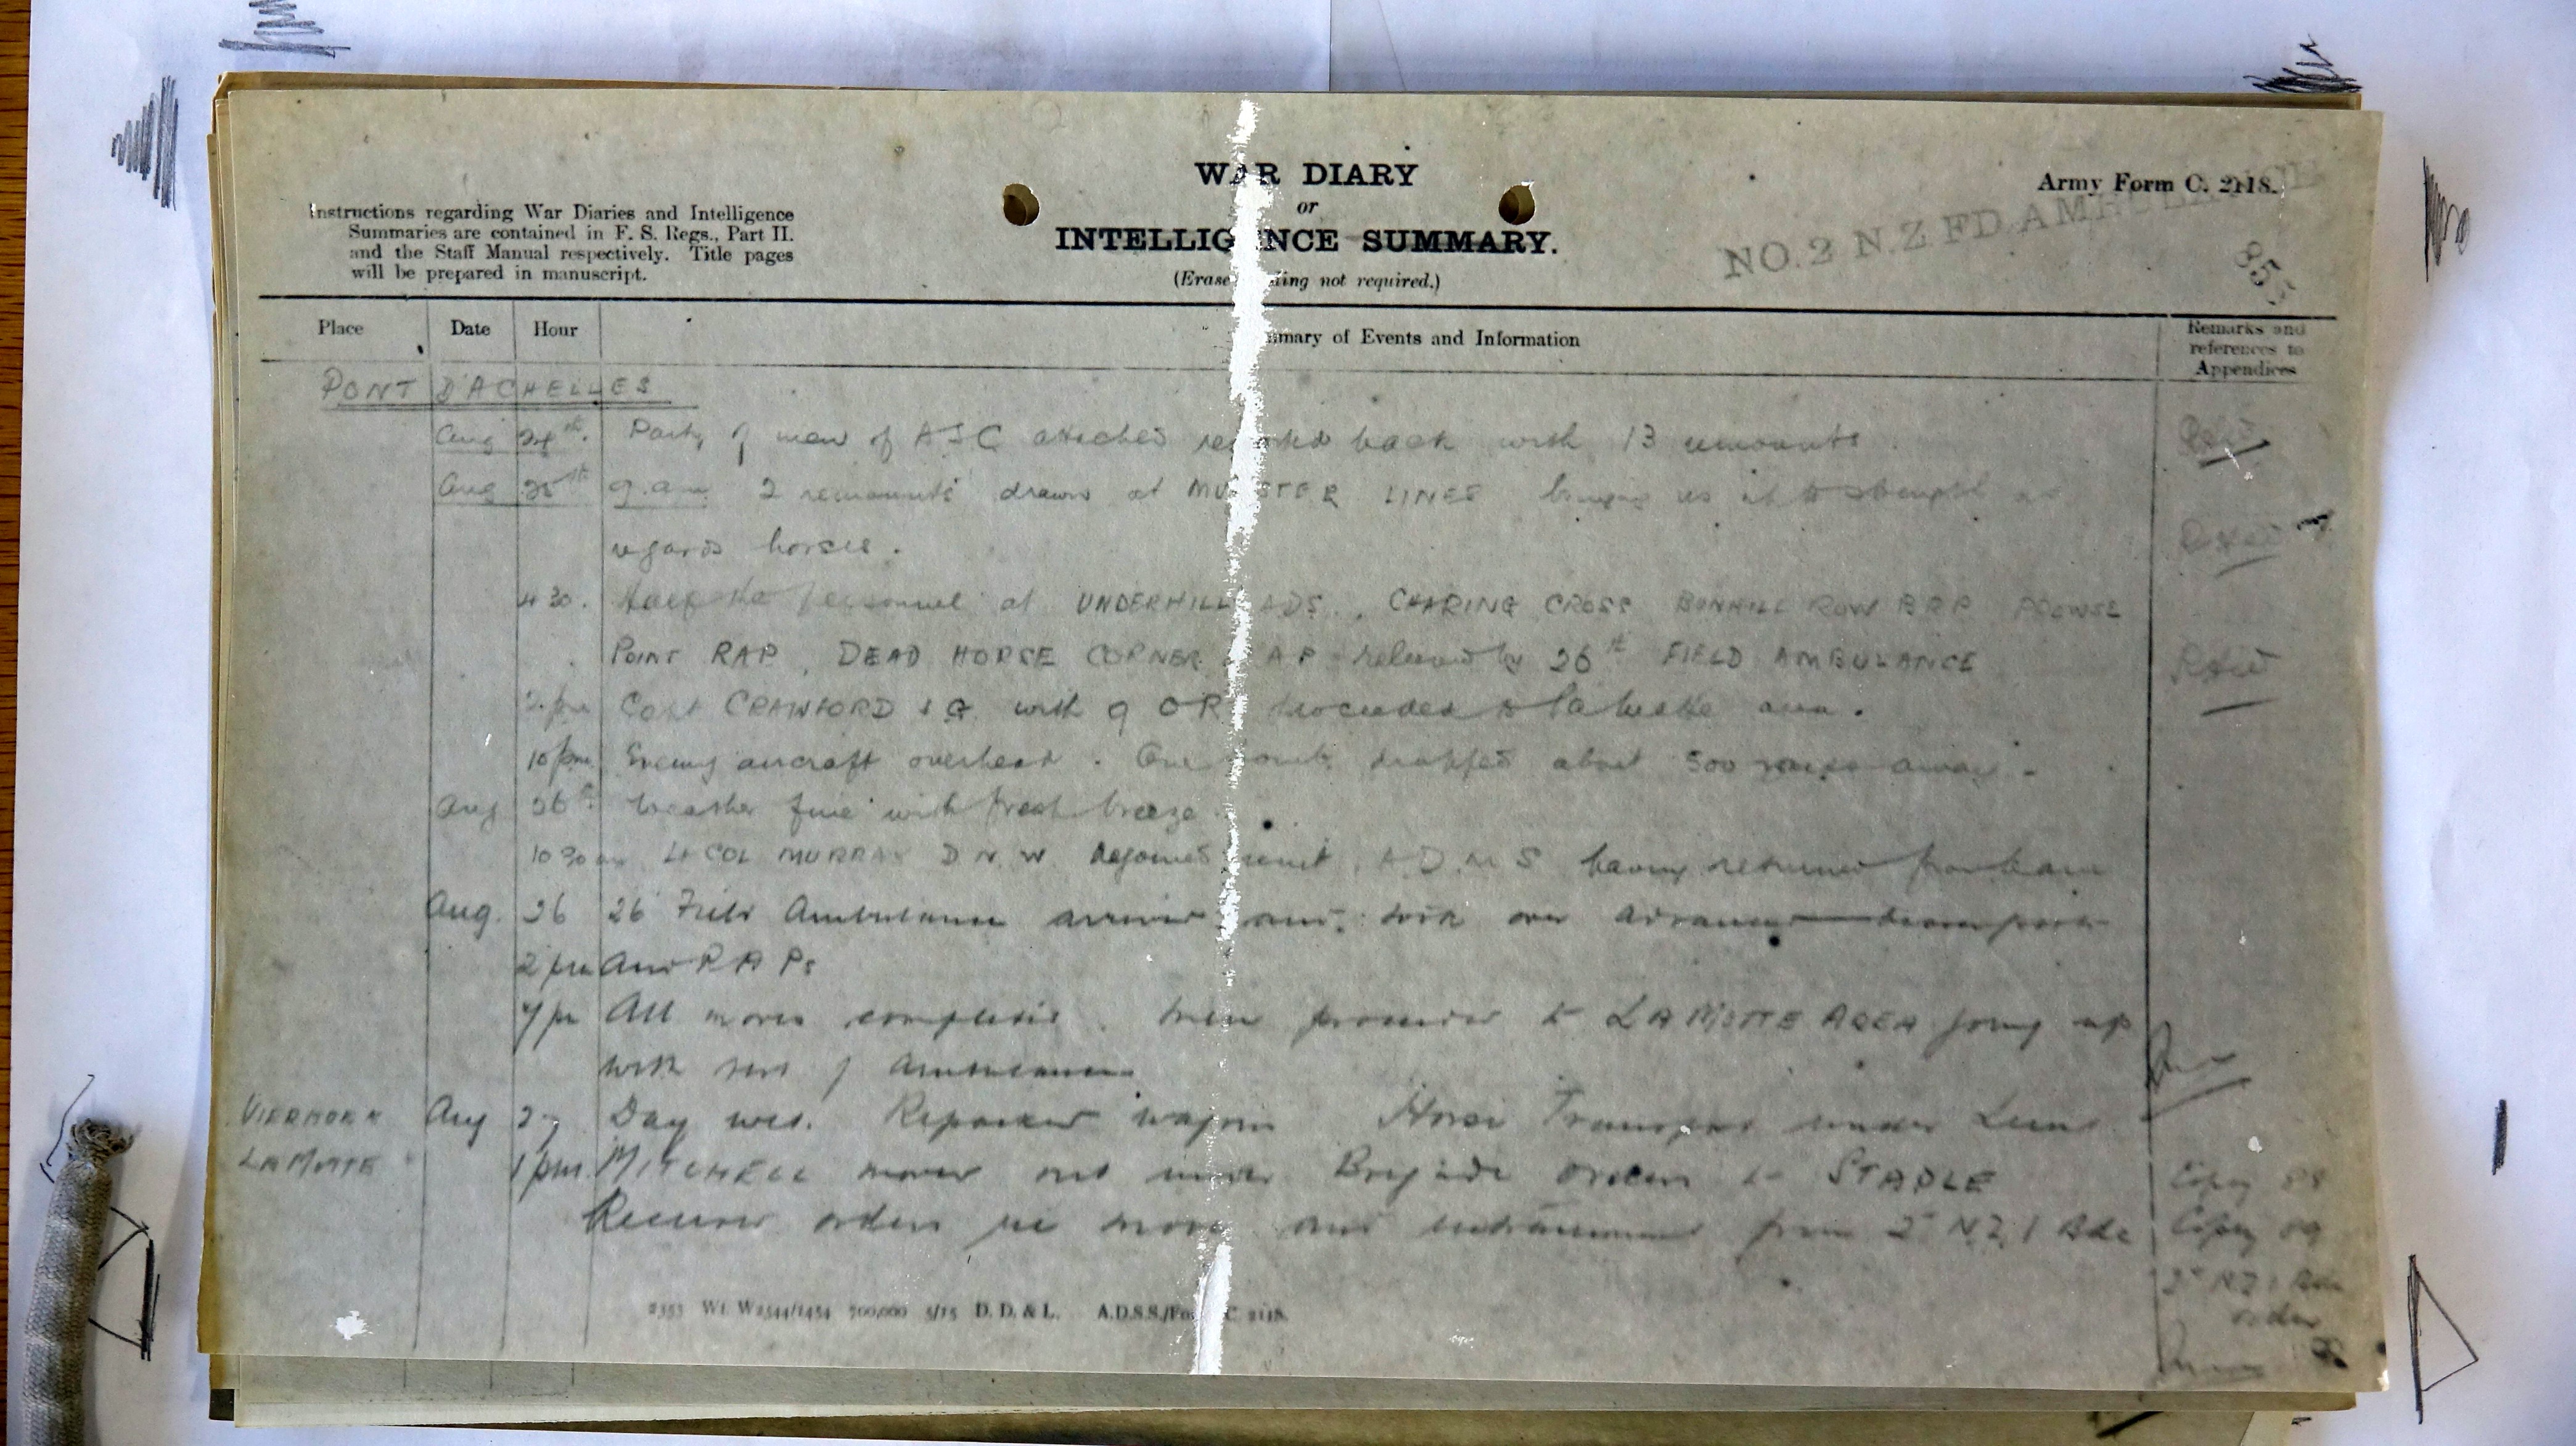 WAR DIARY
or
INTELLIG NCE SUMMARY.
(Erase ding not required.)
Instructions regarding War Diaries and Intelligence
Summaries are contained in F. S. Regs., Part II.
and the Staff Manual respectively. Title pages
will be prepared in manuscript.
Army Form C. 2118.
NO. 2 N.Z FD AMBULANCE
Place Date Hour mmary of Events and Information Remarks and
references to
Appendices
PONT D'ACHELLES
Aug 24th. Party of men of ASC attached reported back with 13 remounts.
Aug 25th 9.am 2 remounts drawn at MUNSTER LINES bringing us to strength as
regards horses.
4 30. Half the personnel at UNDERHILL ADS, CHARING CROSS BUNHILL ROW PROWSE
POINT RAP, DEAD HORSE CORNER AP relieved by 26th FIELD AMBULANCE
2 pm Capt CRAWFORD with 9 OR proceeded to area.
10 pm Enemy aircraft overhead. One bomb dropped about 500 away.
Aug 26th Weather fine with fresh breeze
10 30 am Lt COL MURRAY D N W Rejoined unit, A.D.M.S having returned from leave
Aug. 26 26 Field Ambulance arrived and took over advanced
2 pm and R A Ps
7 pm All moves completed. Men proceeded to LA MOTTE AREA joing up
with rest of Ambulance
LA MOTTE Aug 27 Day wet. Repacked wagons Horse Transport under Lieut
1 pm. MITCHELL moved out under Brigade orders to STAPLE
Received orders re move and entrainment from 2nd N.Z.I Bde
Copy 88
Copy 89
2nd N.Z.I Bde
order
2353 Wt. W2544/1454 700,000 5/15 D. D. & L. A.D.S.S./Fo C. 2118.